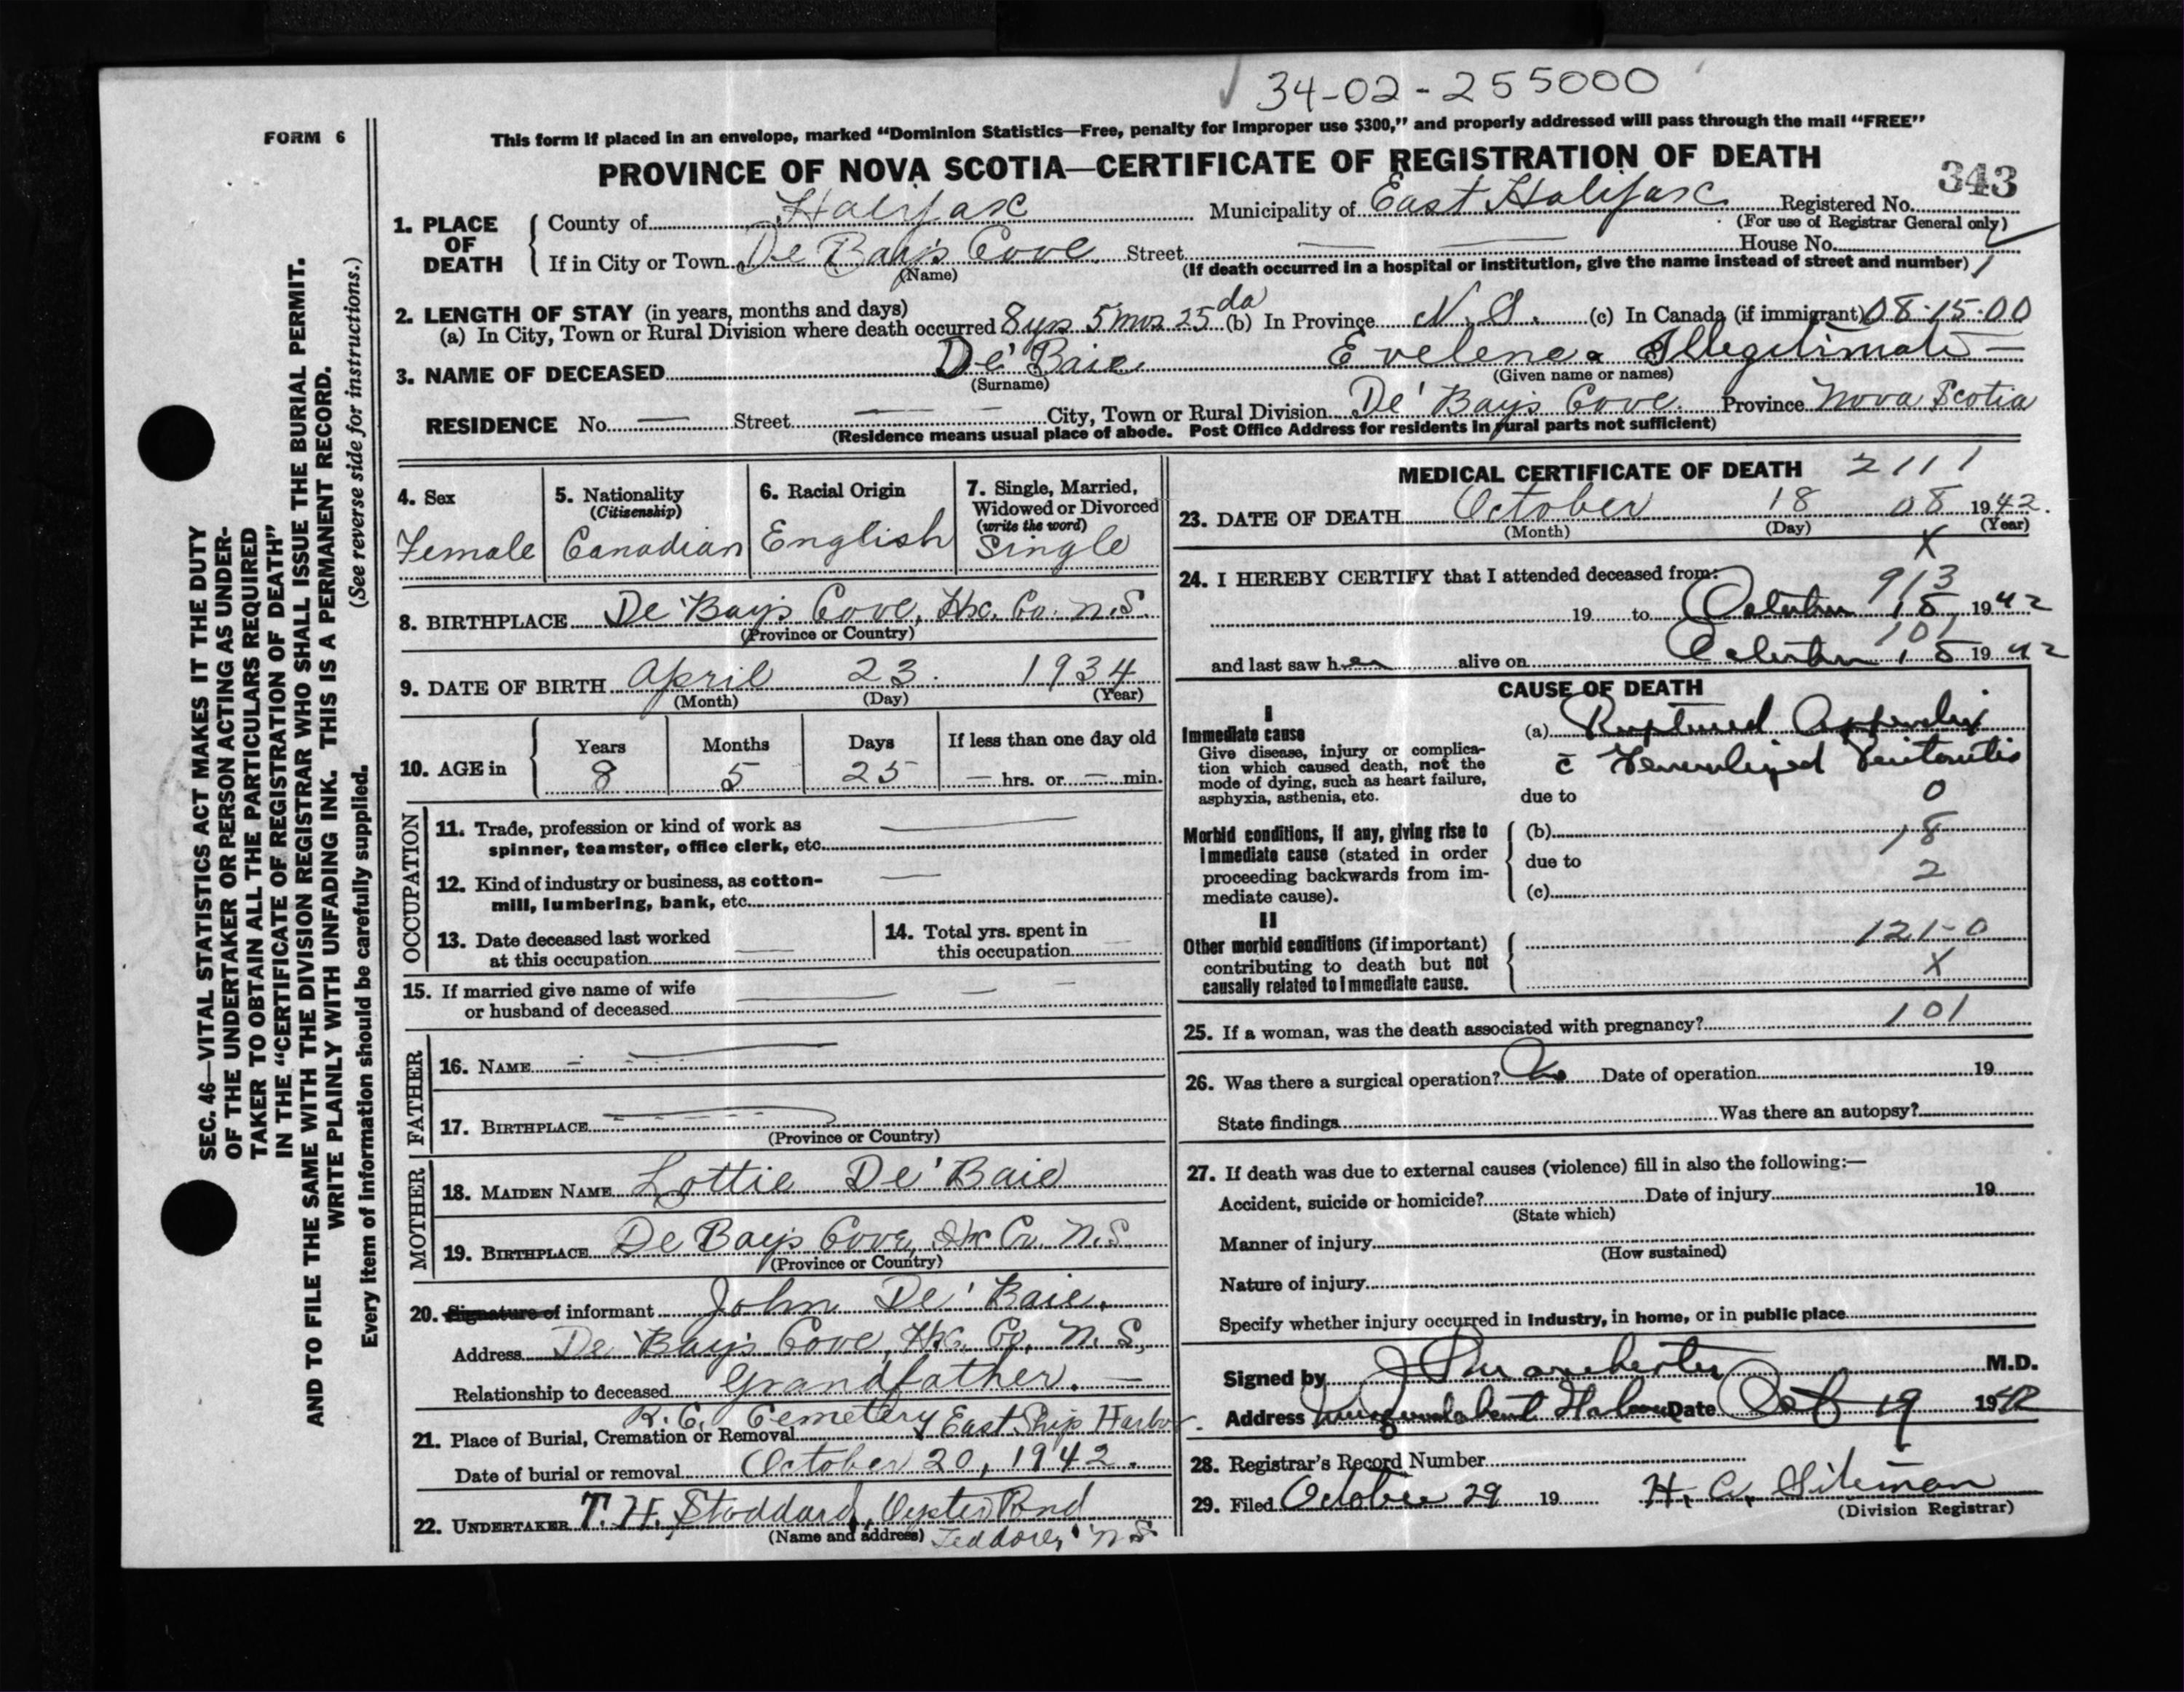 34-02-255000
FORM 6
This form if placed in an envelope, marked “Dominion Statistics—Free, penalty for improper use $300,” and properly addressed will pass through the mail “FREE”
PROVINCE OF NOVA SCOTIA—CERTIFICATE OF REGISTRATION OF DEATH
343
1. PLACE OF DEATH
County of Halifax Municipality of East Halifax Registered No.
(For use of Registrar General only)
If in City or Town De Bay's Cove Street — — House No.
(Name) (If death occurred in a hospital or institution, give the name instead of street and number) 1
2. LENGTH OF STAY (in years, months and days)
(a) In City, Town or Rural Division where death occurred 8 yrs 5 mos 25 da (b) In Province N. S. (c) In Canada (if immigrant) 08-15-00
3. NAME OF DECEASED De' Baie Evelene Illegitimate —
(Surname) (Given name or names)
RESIDENCE No. — Street — — City, Town or Rural Division De' Bay's Cove. Province Nova Scotia
(Residence means usual place of abode. Post Office Address for residents in rural parts not sufficient)
4. Sex
Female
5. Nationality
(Citizenship)
Canadian
6. Racial Origin
English
7. Single, Married, Widowed or Divorced
(write the word)
Single
8. BIRTHPLACE De' Bay's Cove, Hx. Co. N.S.
(Province or Country)
9. DATE OF BIRTH April 23. 1934
(Month) (Day) (Year)
10. AGE in
Years Months Days If less than one day old
8 5 25 — hrs. or — min.
OCCUPATION
11. Trade, profession or kind of work as
spinner, teamster, office clerk, etc. —
12. Kind of industry or business, as cotton-
mill, lumbering, bank, etc. —
13. Date deceased last worked
at this occupation —
14. Total yrs. spent in
this occupation —
15. If married give name of wife
or husband of deceased — — —
FATHER
16. NAME —
17. BIRTHPLACE —
(Province or Country)
MOTHER
18. MAIDEN NAME Lottie De' Baie
19. BIRTHPLACE De Bay's Cove, Hx Co. N.S.
(Province or Country)
20. Signature of informant John De' Baie.
Address De' Bay's Cove, Hx. Co. N. S.
Relationship to deceased Grandfather. —
R. C. Cemetery East Ship Harbor.
21. Place of Burial, Cremation or Removal
Date of burial or removal October 20, 1942.
22. UNDERTAKER T. H. Stoddard,
(Name and address) N.S.
MEDICAL CERTIFICATE OF DEATH 2111
23. DATE OF DEATH October 18 08 1942.
(Month) (Day) (Year)
X
24. I HEREBY CERTIFY that I attended deceased from:
913
19 to October 18 1942
101
and last saw her alive on October 18 1942
CAUSE OF DEATH
I
Immediate cause
Give disease, injury or complica-
tion which caused death, not the
mode of dying, such as heart failure,
asphyxia, asthenia, etc.
(a) Ruptured Appendix
c̄ Generalized Peritonitis
due to 0
Morbid conditions, if any, giving rise to
immediate cause (stated in order
proceeding backwards from im-
mediate cause).
(b) 18
due to 2
(c)
II
Other morbid conditions (if important)
contributing to death but not
causally related to immediate cause.
121-0
X
25. If a woman, was the death associated with pregnancy? 101
26. Was there a surgical operation? No Date of operation 19
State findings Was there an autopsy?
27. If death was due to external causes (violence) fill in also the following:—
Accident, suicide or homicide? Date of injury 19
(State which)
Manner of injury
(How sustained)
Nature of injury
Specify whether injury occurred in industry, in home, or in public place
Signed by M.D.
Address Musquodoboit Harbour Date Oct 19 1942
28. Registrar's Record Number
29. Filed October 29 19 H. C. Siteman
(Division Registrar)
SEC. 46—VITAL STATISTICS ACT MAKES IT THE DUTY
OF THE UNDERTAKER OR PERSON ACTING AS UNDER-
TAKER TO OBTAIN ALL THE PARTICULARS REQUIRED
IN THE “CERTIFICATE OF REGISTRATION OF DEATH”
AND TO FILE THE SAME WITH THE DIVISION REGISTRAR WHO SHALL ISSUE THE BURIAL PERMIT.
WRITE PLAINLY WITH UNFADING INK. THIS IS A PERMANENT RECORD.
Every item of information should be carefully supplied. (See reverse side for instructions.)